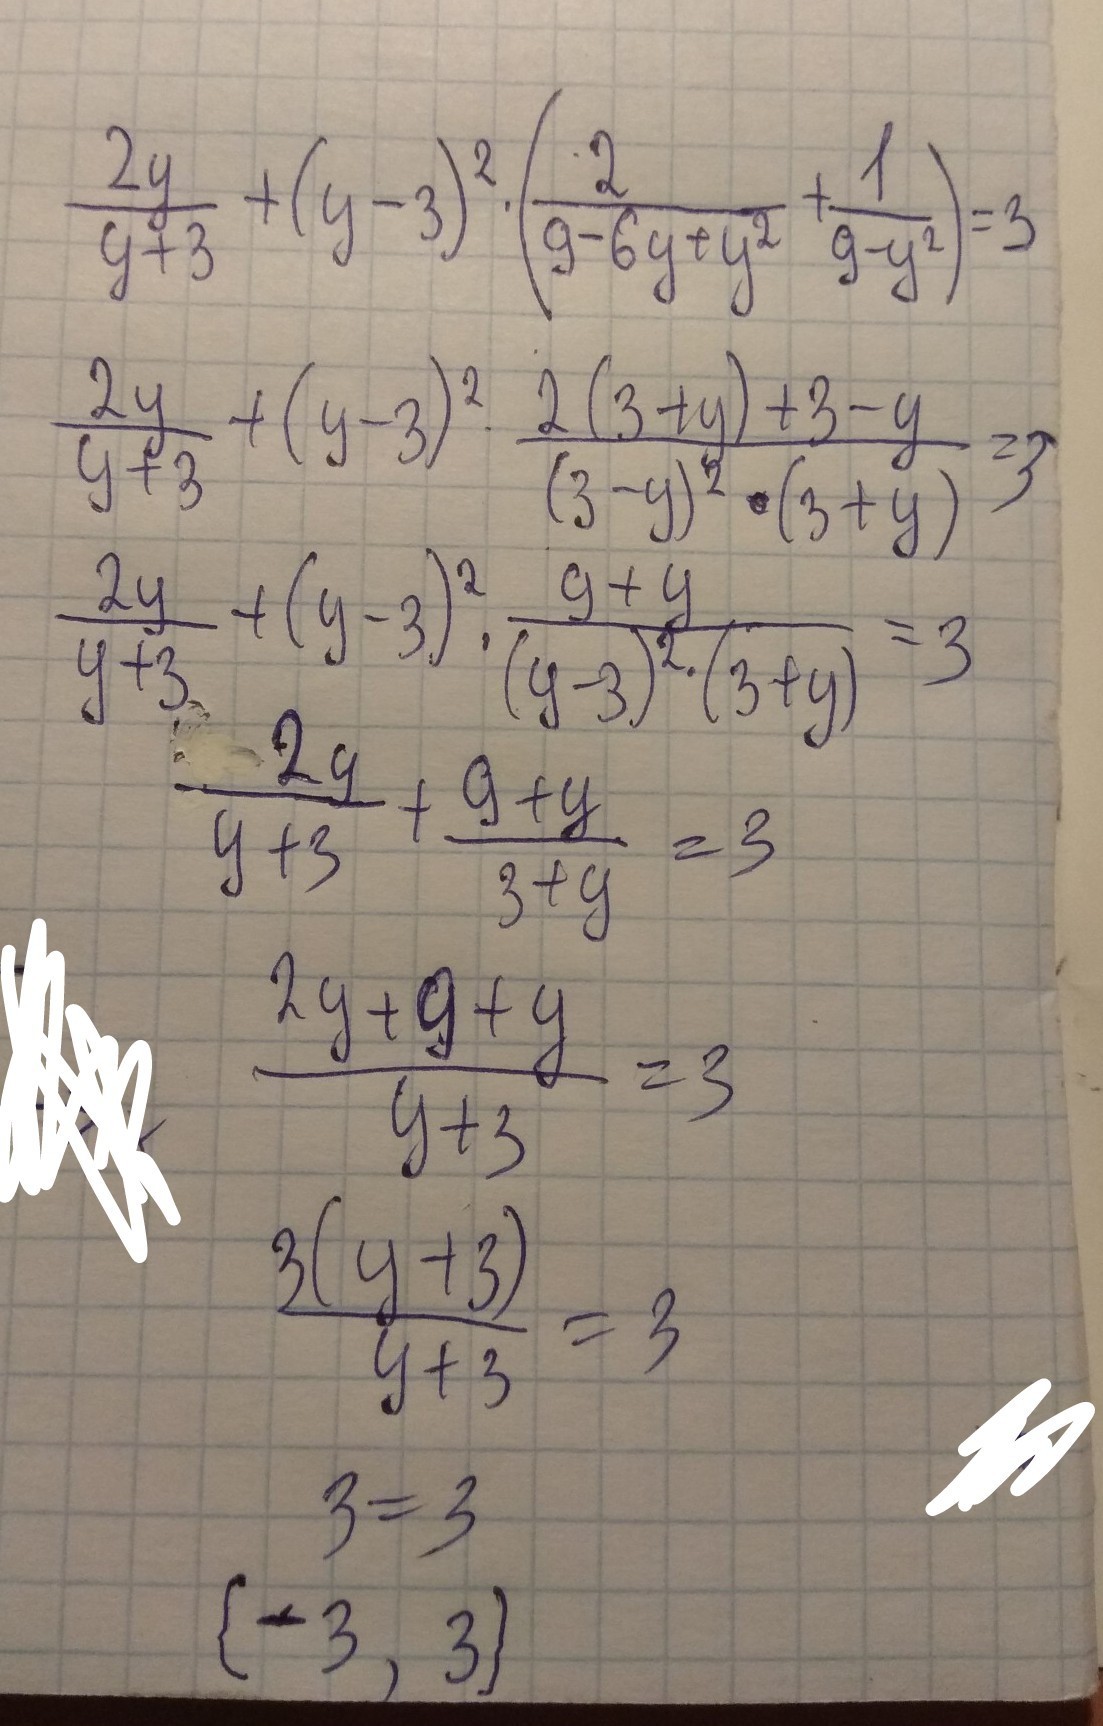 2y/(y+3) + (y-3)² · (2/(9-6y+y²) + 1/(9-y²)) = 3
2y/(y+3) + (y-3)² · (2(3+y)+3-y)/((3-y)² · (3+y)) = 3
2y/(y+3) + (y-3)² · (9+y)/((y-3)² · (3+y)) = 3
2y/(y+3) + (9+y)/(3+y) = 3
(2y+9+y)/(y+3) = 3
3(y+3)/(y+3) = 3
3 = 3
{-3, 3}